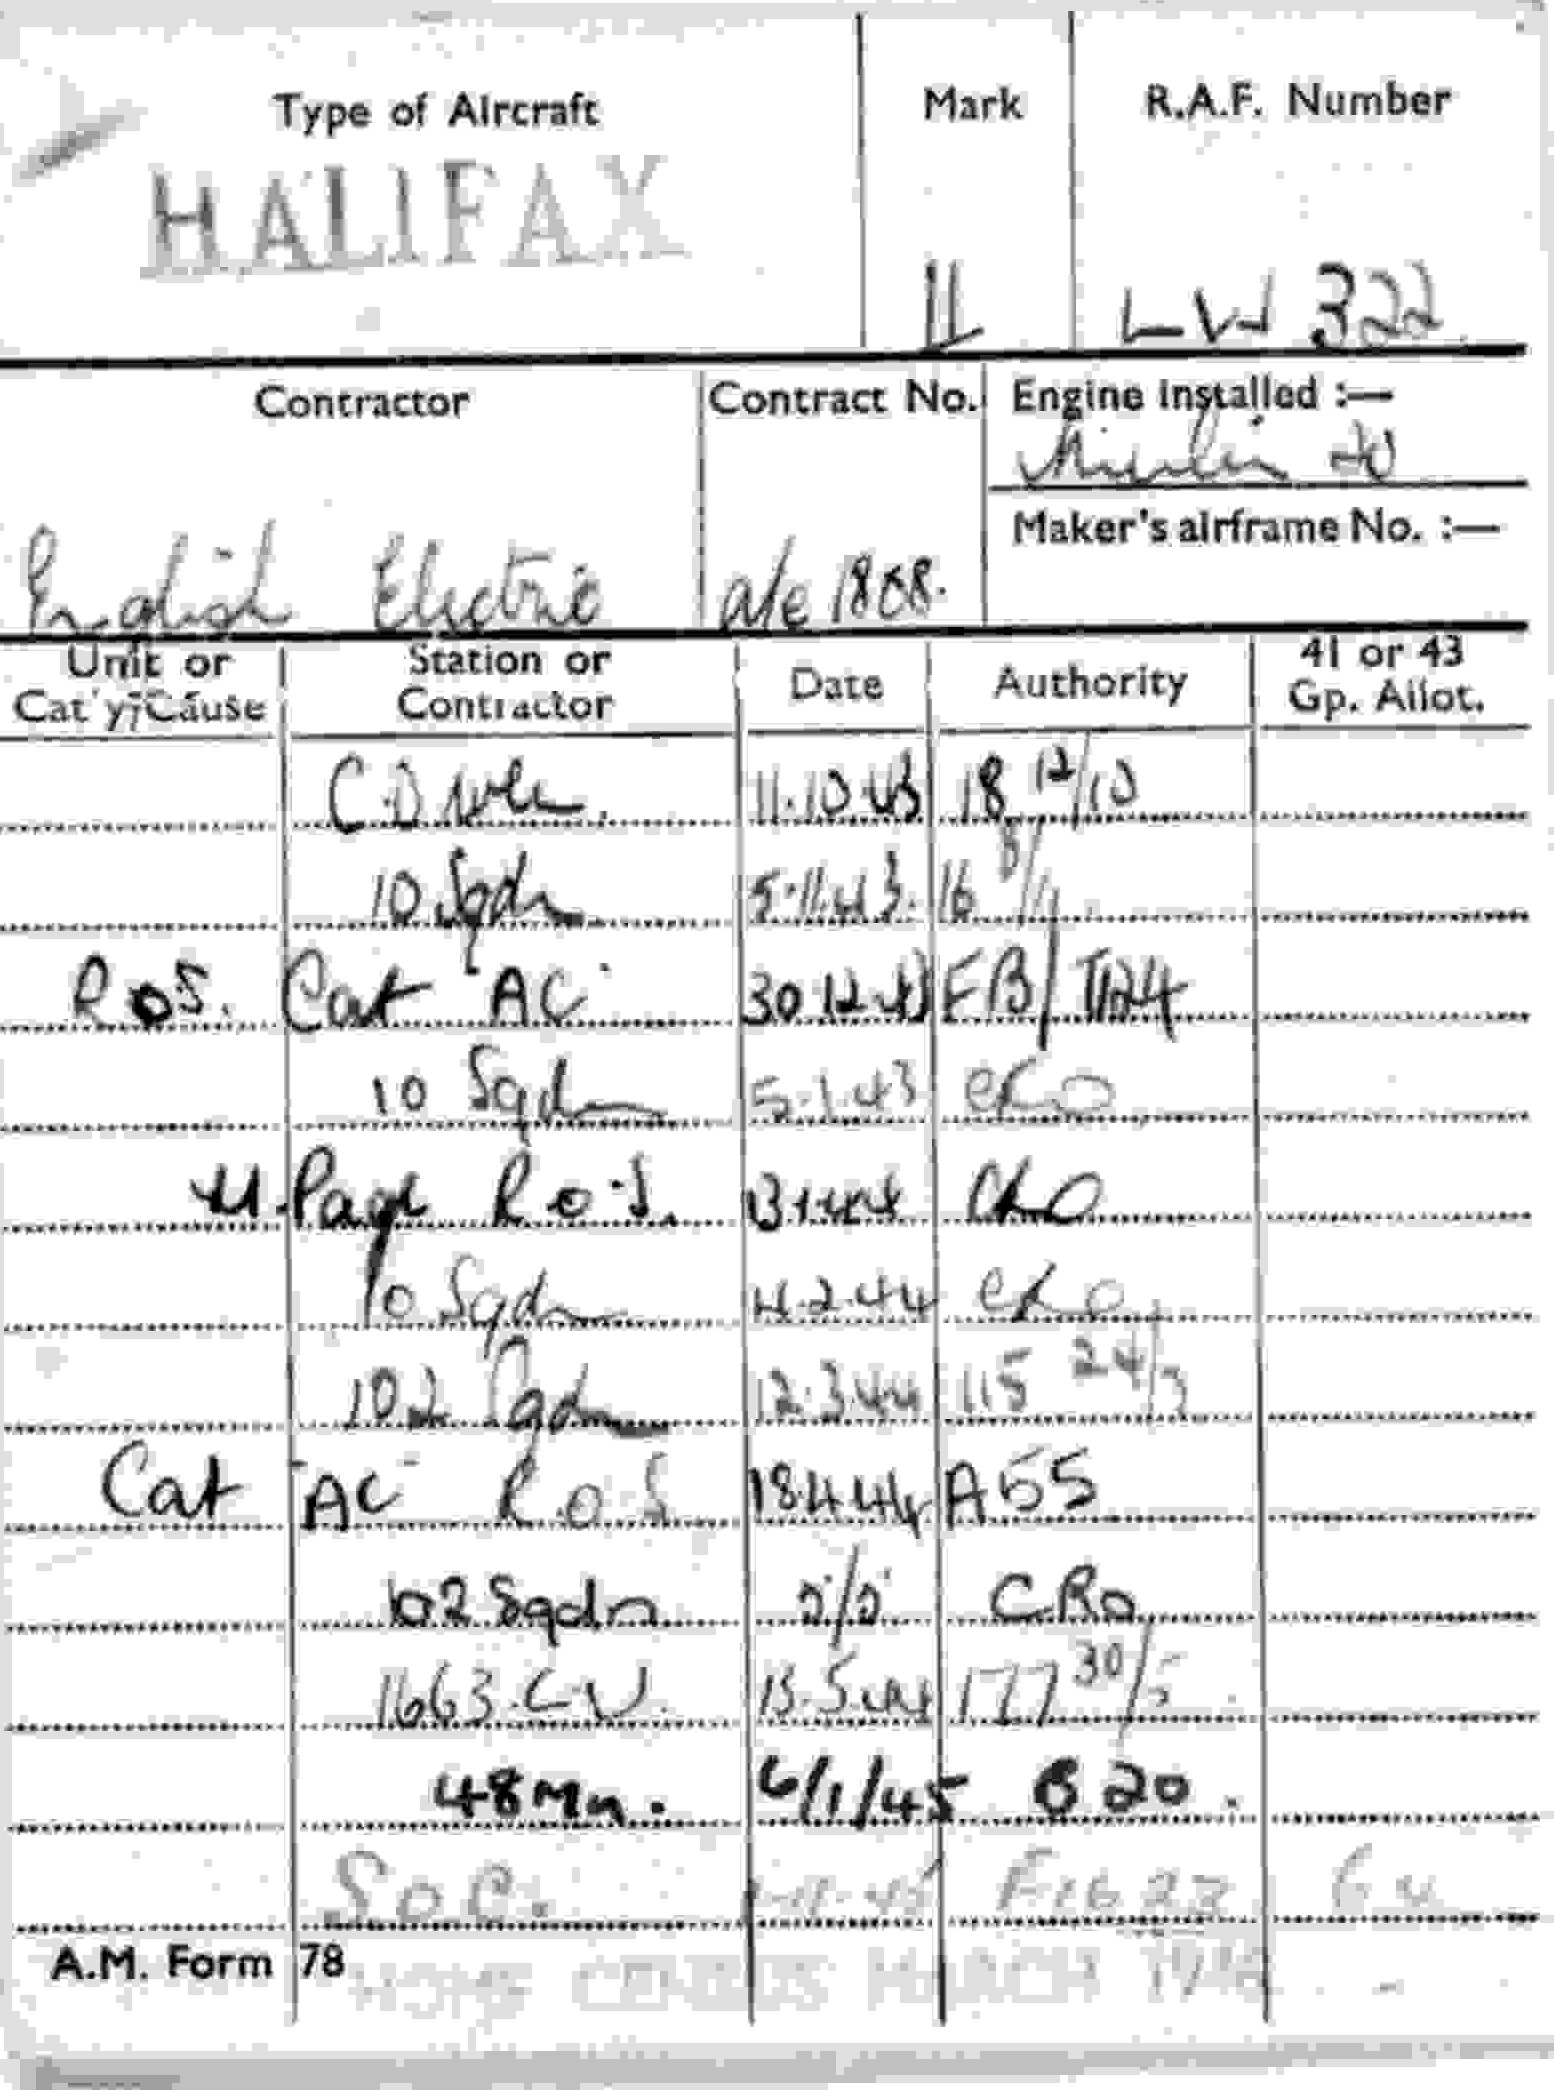 Type of Aircraft Mark R.A.F. Number
HALIFAX II LW 322
Contractor Contract No. Engine installed :—
Merlin 20
Maker's airframe No. :—
English Electric a/c 1808.
Unit or Station or Date Authority 41 or 43
Cat'y/Cause Contractor Gp. Allot.
11.10.43 18 12/10
10 Sqdn 5.11.43. 16
R.o.S. Cat "AC" 30.12.43 EB/
10 Sqdn 5.1.43 CRO
H.Page R.o.S. 13.1.44 CRO
10 Sqdn 4.2.44 CRO
102 Sqdn 12.3.44 115 24/3
Cat "AC" R.o.S 18.4.44 A55
102 Sqdn 5/5 CRO
1663.C.U. 177 30/5
48 Mu. 6/1/45 B 20.
S.o.C.
A.M. Form 78 HOME CENSUS MARCH